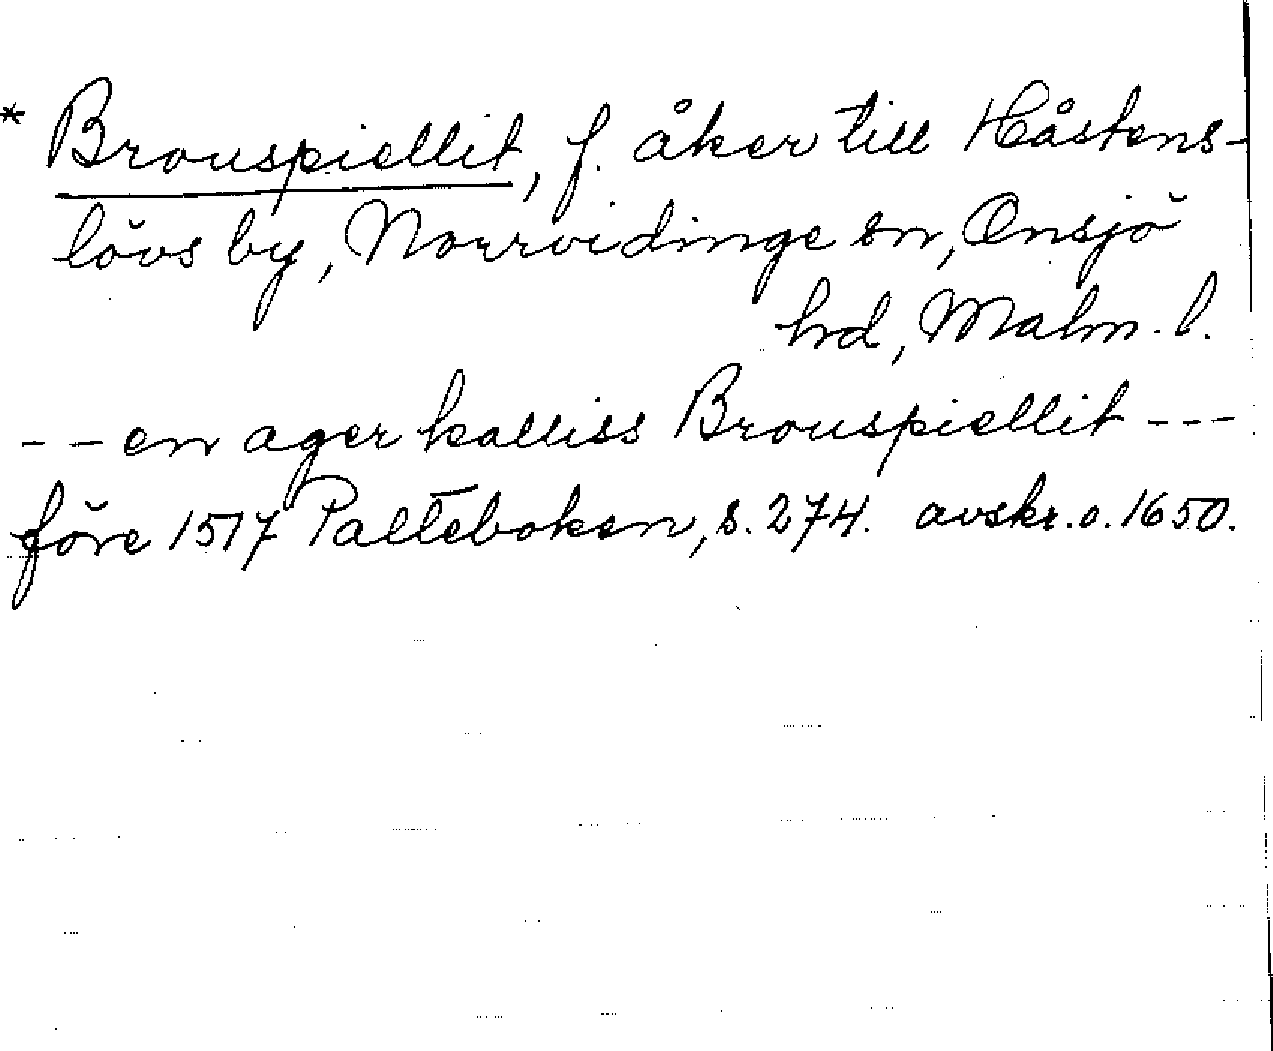 * Brouspiellit, f. åker till Håstens-
lövs by, Norrvidinge sn, Onsjö
hd, Malm. l.
-- en ager kalliss Brouspiellit ---
före 1517 Palteboken, s. 274. avskr. o. 1650.